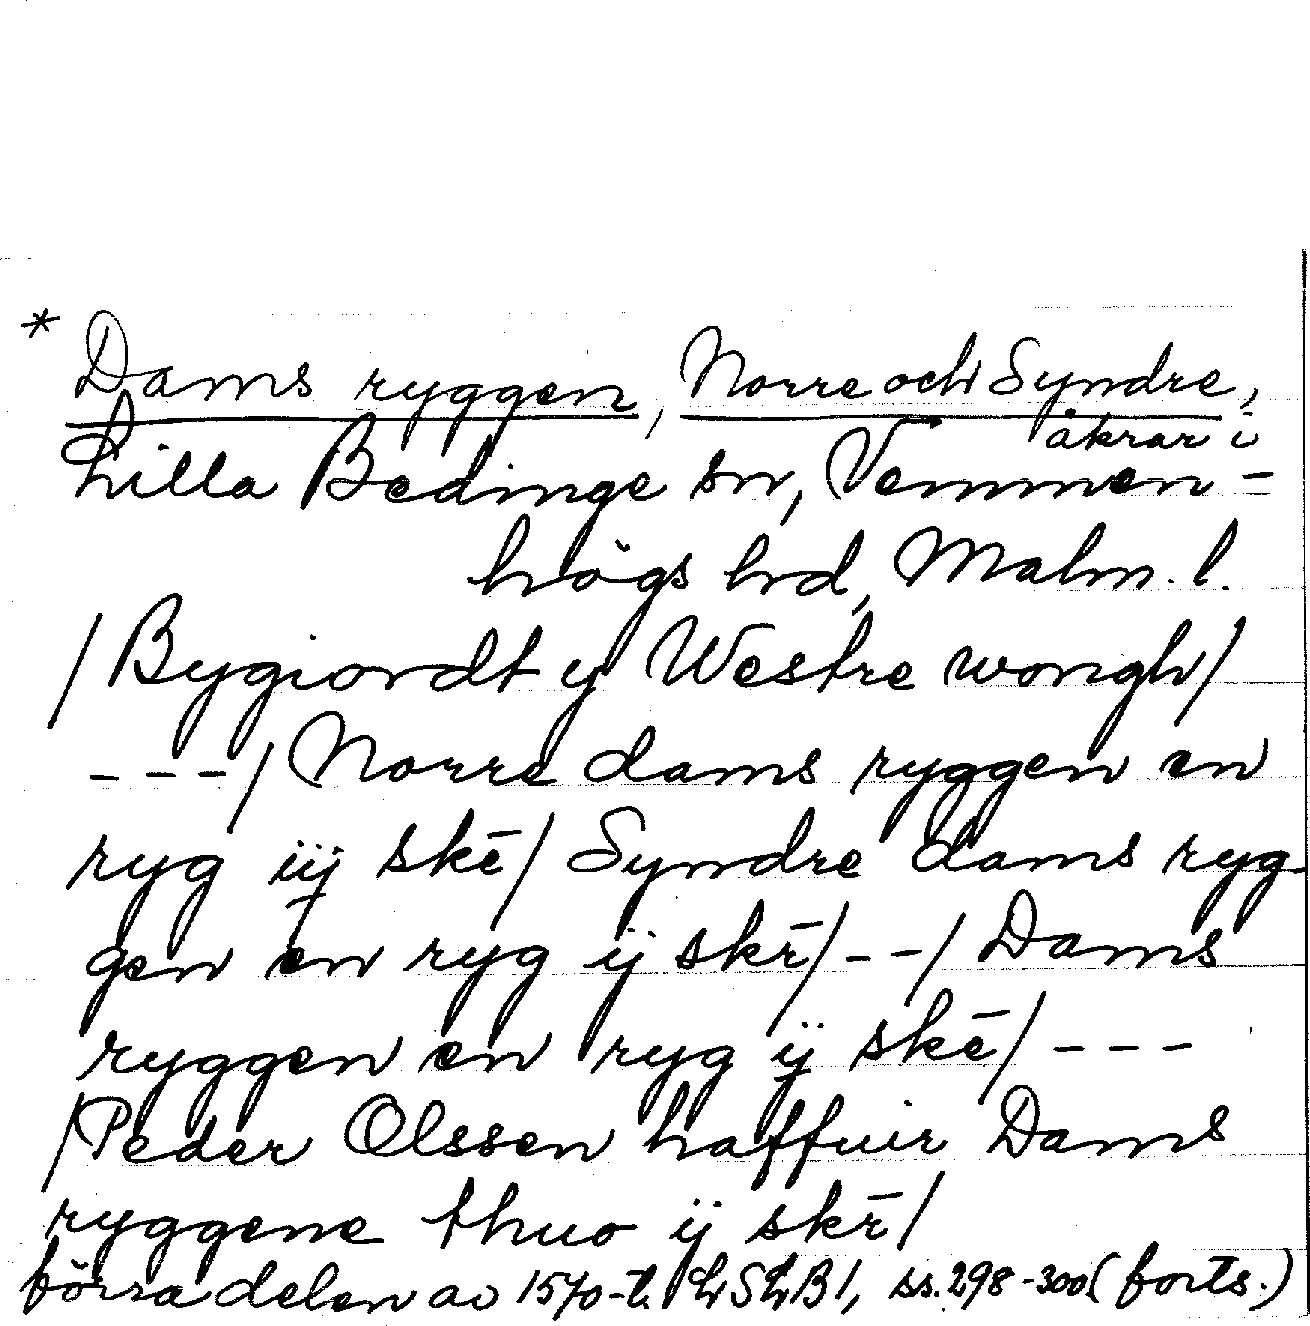 * Dams ryggen, Norre och Syndre,
åkrar i
Lilla Bedinge sn, Vemmen-
högs hrd, Malm. l.
/Bygiordt y Westre wongh/
---/Norre dams ryggen en
ryg iij skē/Syndre dams ryg
gen en ryg ij skē/--/Dams
ryggen en ryg ij skē/---
/Peder Olssen haffuir Dams
ryggene thuo ij skē/
förra delen av 1570-t. LSLB1, ss. 298-300 (forts.)